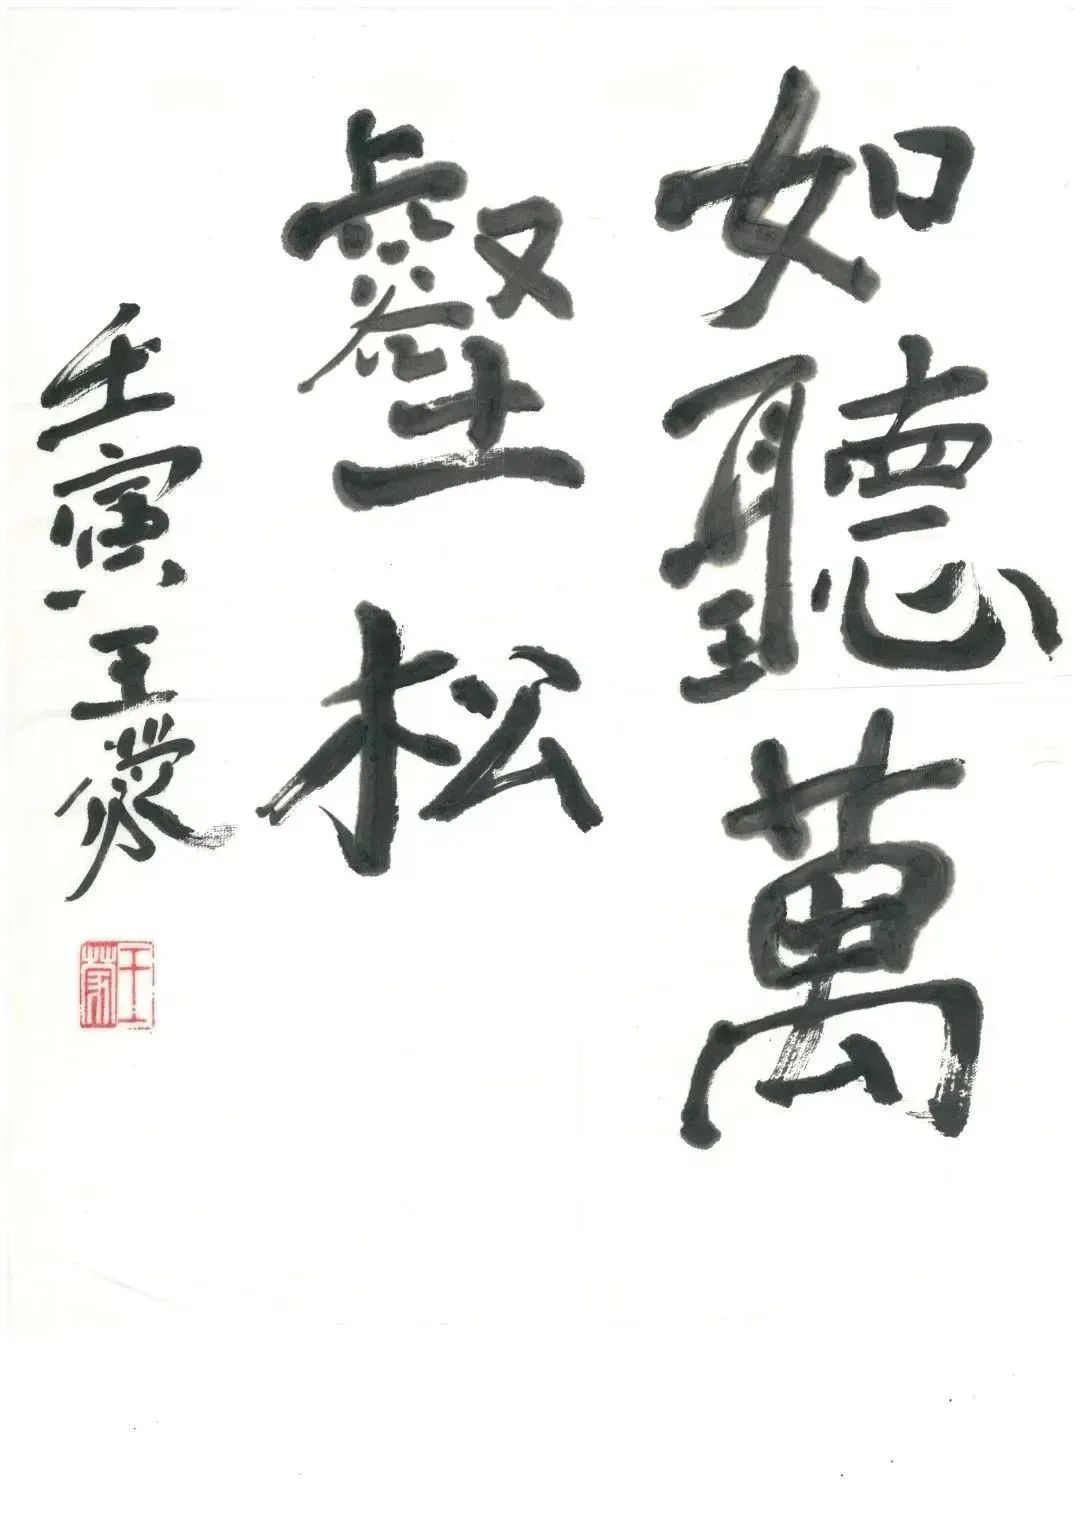 如聽萬
壑松
壬寅 王蒙
王蒙